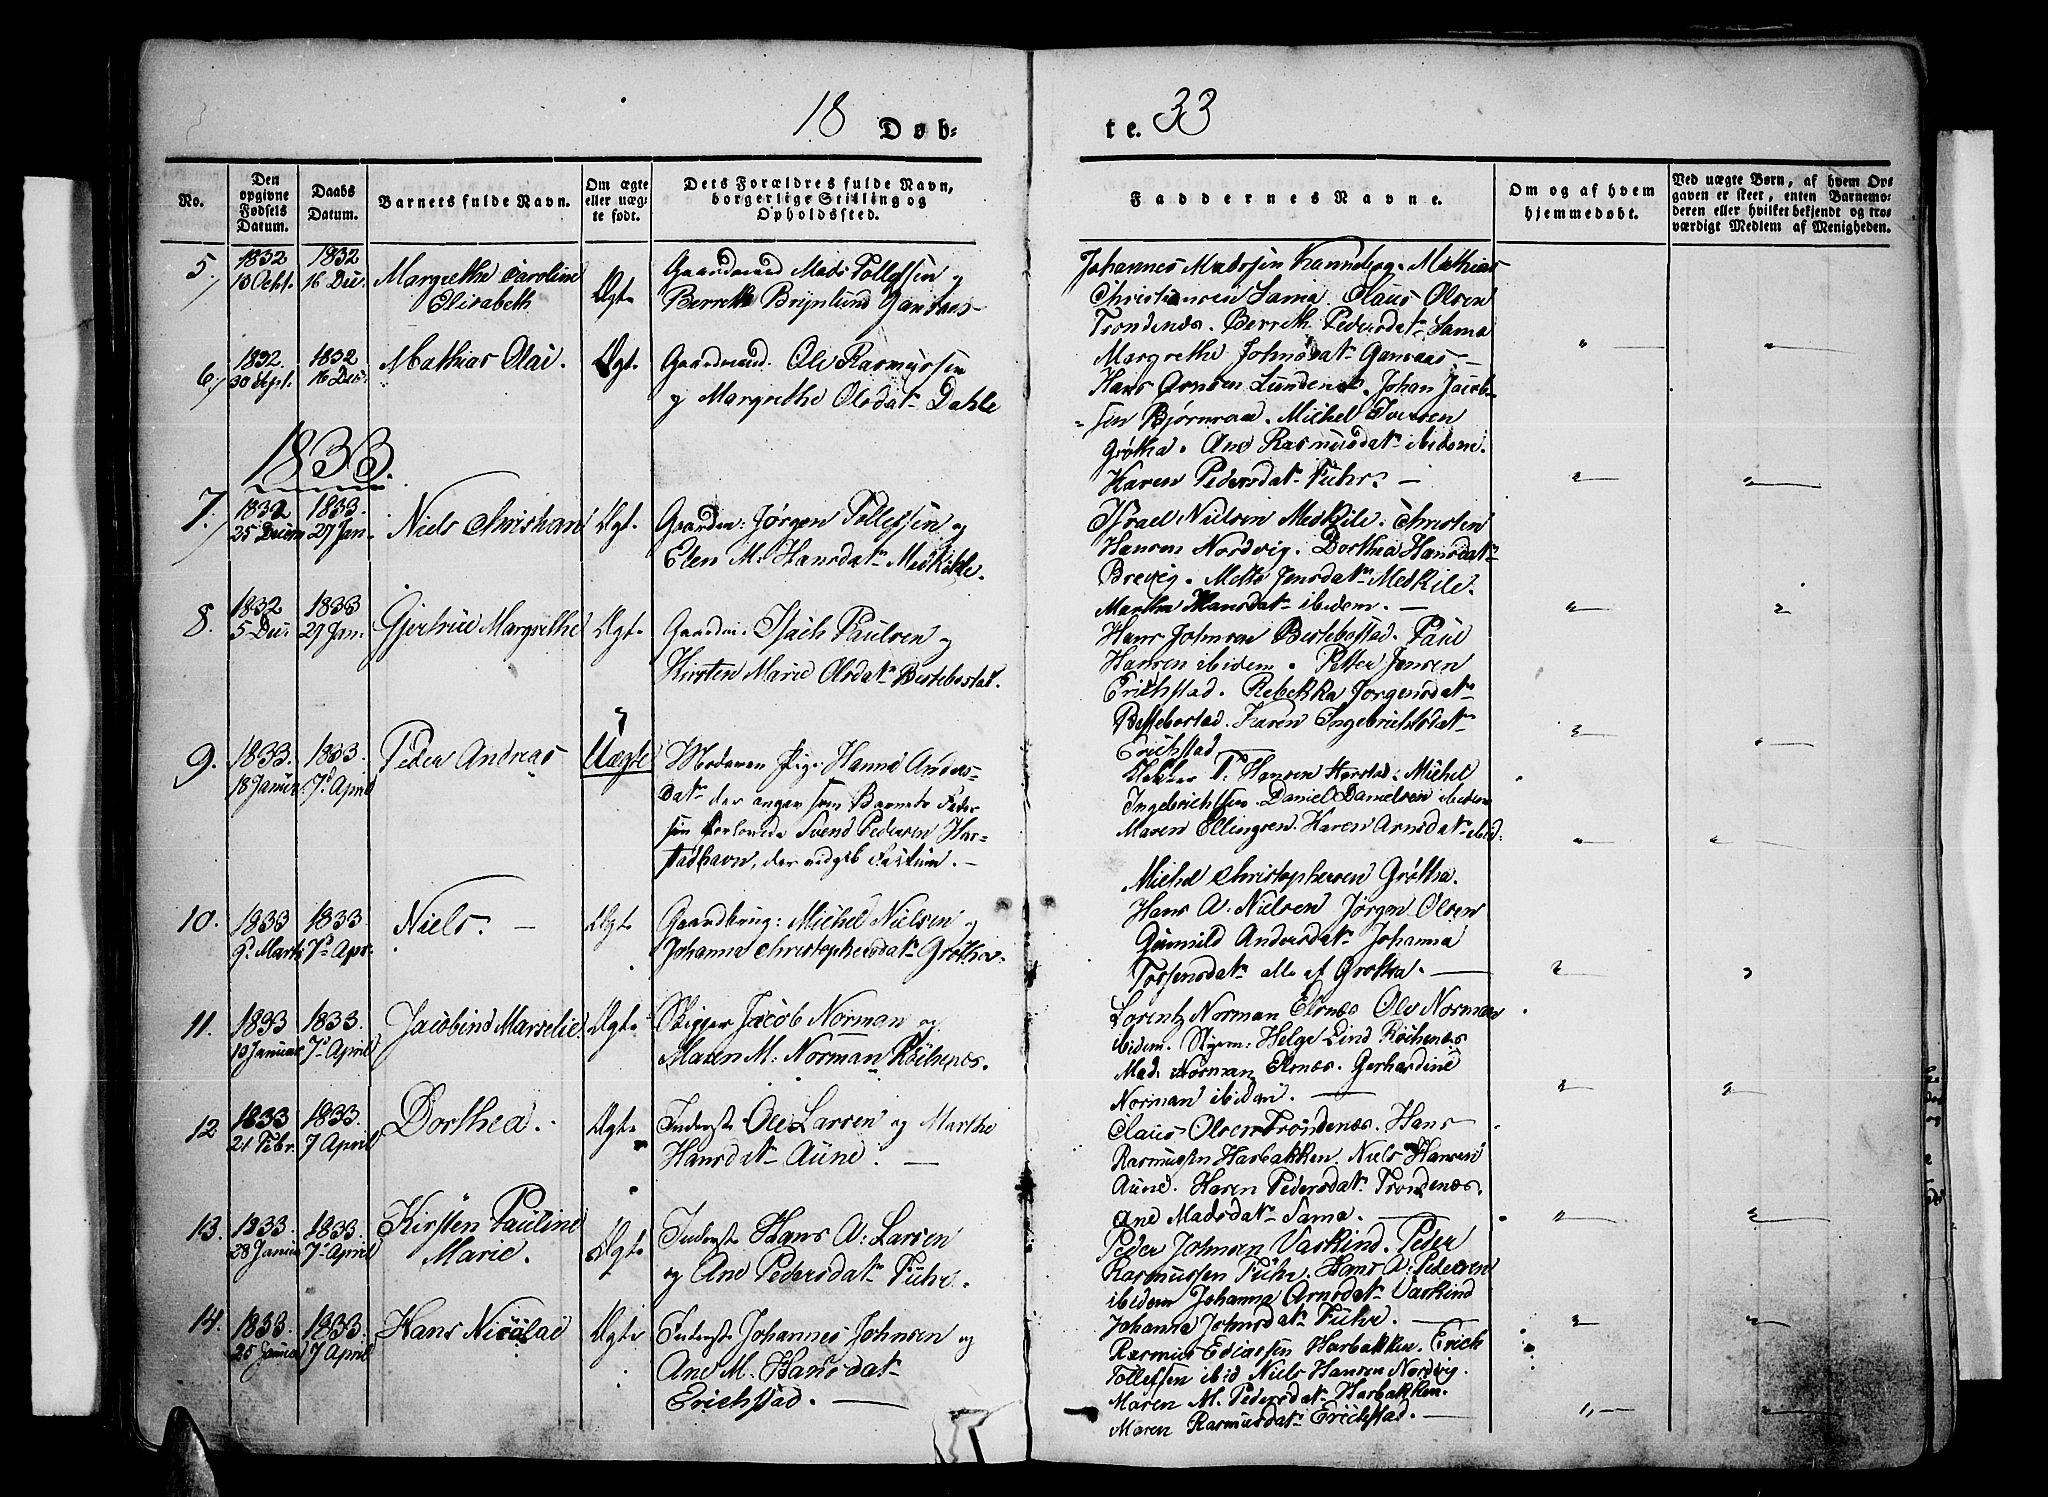 18 Døb-
te. 33
No.
Den opgivne Fødsels Datum.
Daabs Datum.
Barnets fulde Navn.
Om ægte eller uægte født.
Dets Forældres fulde Navn, borgerlige Stilling og Opholdssted.
Faddernes Navne.
Om og af hvem hjemmedøbt.
Ved uægte Børn, af hvem Opgaven er skeet, enten Barnemoderen eller hvilket bekjendt og troværdigt Medlem af Menigheden.
5
1832
1832
16 Dec.
Margrethe Caroline
Elisabeth
Ægte
Gaardmand Mads Tollefsen og
Berreth Brynlund Gansaas
Johannes Madssen Kanneboge. Mathias
Christiansen Sama. Claus Olsen
Trondenæs. Berreth Pedersdatr Sama
Margrethe Johnsdatr Gansaas
6
1832
30 Sept.
1832
16 Dec.
Mathias Olai.
Ægte
Gaardmand. Ole Rasmussen
og Margrethe Olsdatr Dahle
Hans Arnsen Lundenæs. Johan Jacob-
sen Bjørnraae. Michel Iversen
Grøtha. Ane Rasmusdatr ibidem.
Karen Pedersdatr Fuhre.
1833.
7.
1832
25 Decem
1833.
27 Jan.
Niels Christian
Ægte
Gaardm: Jørgen Tollefsen og
Elen M. Hansdatr Medkilde.
Israel Nielsen Medkile. Christen
Hansen Nordvig. Dorthea Hansdatr
Brevig. Mette Jensdatr Medkile.
Martha Hansdatr ibidem.
8.
1832
5 Dec.
1833
27 Jan.
Gjertrue Margrethe
Ægte
Gaardm: Isach Paulsen og
Kirsten Marie Olsdatr Bestebostad.
Hans Johnsen Bestebostad. Paul
Hansen ibidem. Petter Jensen
Erichstad. Rebekka Jørgensdatr
Bestebostad. Karen Ingebrichtsdatr
Erichstad
9.
1833.
18 Januar
1833.
7d April
Peder Andreas
Uægte
Moderen Pige Hanne Anders-
datr der angav som Barnets Fader
sin forlovede Svend Pedersen Har-
stadhavn, der vedgik Factum.
T. Hansen Harstad. Michel
Ingebrichtsen. Daniel Danielsen ibidem
Maren Ellingsen. Karen Arnsdatr ibid:
10.
1833
9d Marts
1833.
7d Apr.
Niels.
Ægte
Gaardbrug: Michel Nielsen og
Johanna Christophersdatr Grøtha.
Michel Christophersen Grøtha.
Hans A. Nielsen Jørgen Olsen
Gunnild Andersdatr Johanna
Torstensdatr alle af Grøtha.
11.
1833
13 Januar
1833.
7d April
Jacobine Marselie
Ægte
Skipper Jacob Norman og
Maren M: Norman Röikenæs.
Lorentz Norman Elsnæs Ole Norman
ibidem. Styrm: Helge Lind Röikenæs
Mad. Norman Elsnæs. Gerhardine
Norman ibidem.
12
1833
21 Febr.
1833.
7 April
Dorthea.
Ægte
Inderste Ole Larsen og Marthe
Hansdatr Aune.
Claus Olsen Trondenæs. Hans
Rasmussen Harbakken. Niels Hansen
Aune. Karen Pedersdatr Trondenæs.
Ane Madsdatr Sama.
13.
1833.
28 Januar
1833.
7d April
Kirsten Pauline
Marie.
Ægte
Inderste Hans A: Larsen
og Ane Pedersdatr Fuhre.
Peder Johnsen Vaskind. Peder
Rasmussen Fuhr. Hans A: Pedersen
ibidem Johanna Arnsdatr Vaskind
Johanna Johnsdatr Fuhre.
14.
1833.
25 Januar
1833.
7 April
Hans Nicolai
Ægte
Inderste Johannes Johnsen og
Ane M. Hansdatr
Erichstad.
Rasmus Ediassen Harbakken. Erich
Tollefsen ibid Niels Hansen Nordvig.
Maren M. Pedersdatr Harbakken.
Maren Rasmusdatr Erichstad.